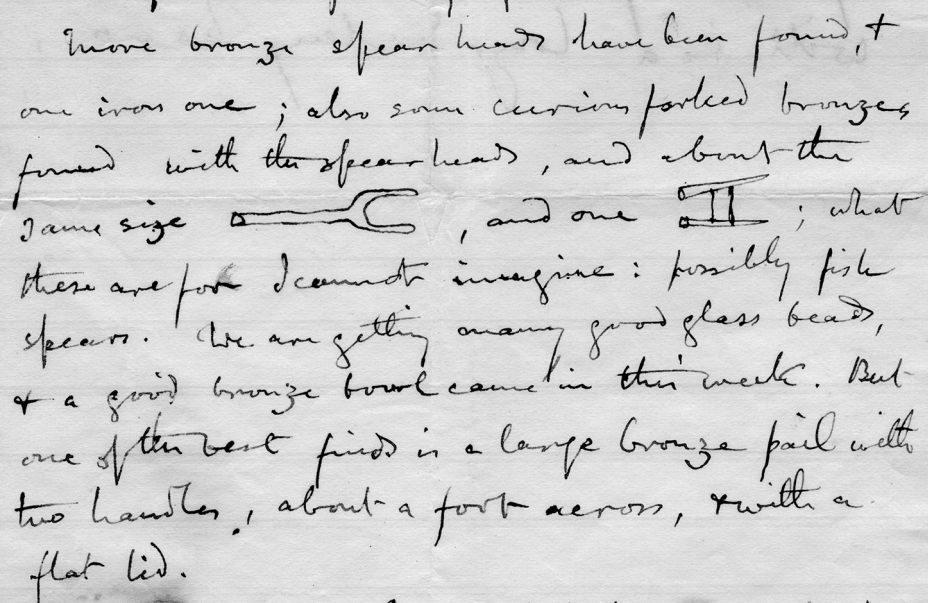 More bronze spear heads have been found, +
one iron one ; also some curious forked bronzes
found with the spear heads , and about the
same size , and one ; what
these are for I cannot imagine : possibly fish
spears. We are getting many good glass beads,
+ a good bronze bowl came in this week. But
one of the best finds is a large bronze pail with
two handles , about a foot across, + with a
flat lid.